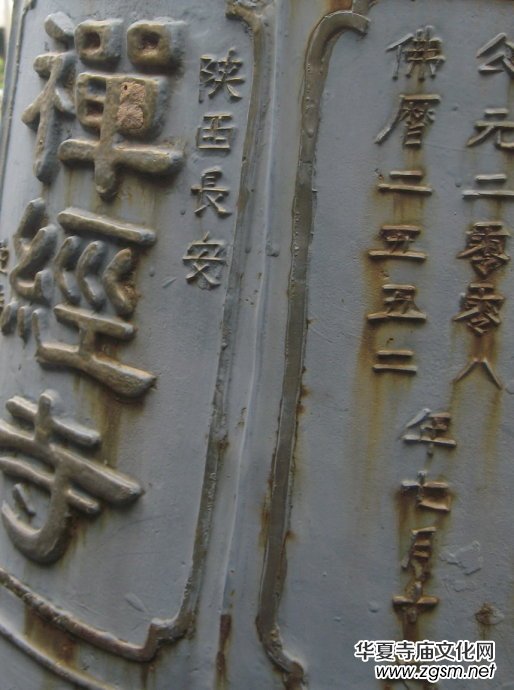 公元二零零八
佛曆二五五二
年七月十
陝西長安
禪經寺
华夏寺庙文化网
www.zgsm.net